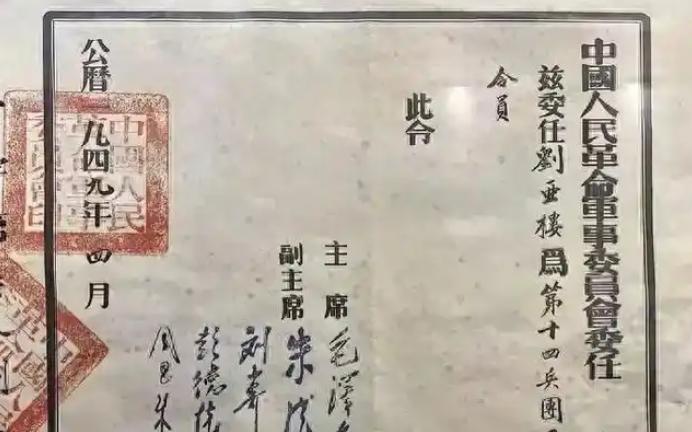 中國人民革命軍事委員會委任
茲委任劉亞樓爲第十四兵團司
令員
此令
主席 毛澤
副主席 朱
刘
彭德
周
公曆一九四九年四月
中國人民
革命軍事
委員會印